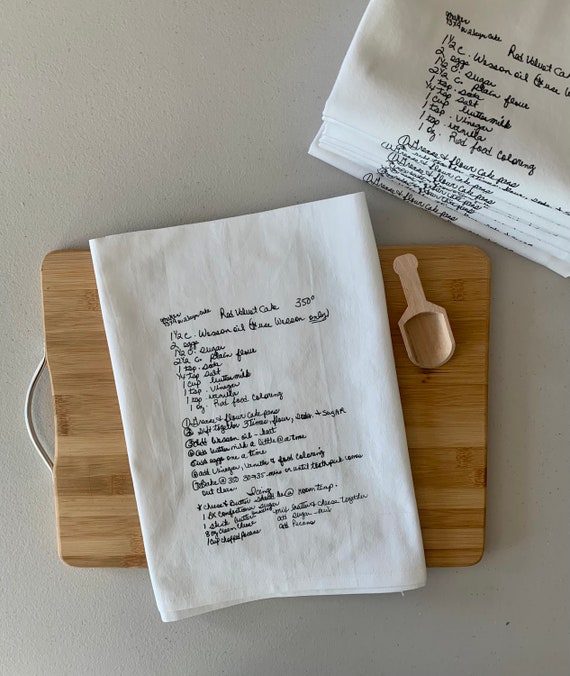 makes
Red Velvet Cake 350°
1 1/2 C. Wesson oil (use Wesson only)
2 eggs
1 1/2 C. sugar
2 1/2 C. plain flour
1 tsp. soda
1/4 tsp salt
1 cup buttermilk
1 tsp. vinegar
1 tsp vanilla
1 oz. Red food coloring
① Grease & flour cake pans
② Sift together 3 times, flour, soda, & sugar
③ Add Wesson oil - beat
④ Add butter milk a little @ a time
⑤ Add eggs one a time
⑥ add vinegar, vanilla & food coloring
⑦ Bake @ 350 30-35 min or until toothpick comes
out clean
Icing
* cheese & butter should be @ room temp.
1 BX Confectioners sugar
1 stick butter
8 oz cream cheese
1 cup chopped pecans
mix butter & cheese together
add sugar
add pecans
makes
Red Velvet Cak
1 1/2 C. Wesson oil (use W
2 eggs
1 1/2 C. sugar
2 1/2 C. plain flour
1 tsp. soda
1/4 tsp salt
1 cup buttermilk
1 tsp. vinegar
1 tsp. vanilla
1 oz. Red food coloring
① Grease & flour cake pans
Grease & flour cake pans
Grease & flour cake pans